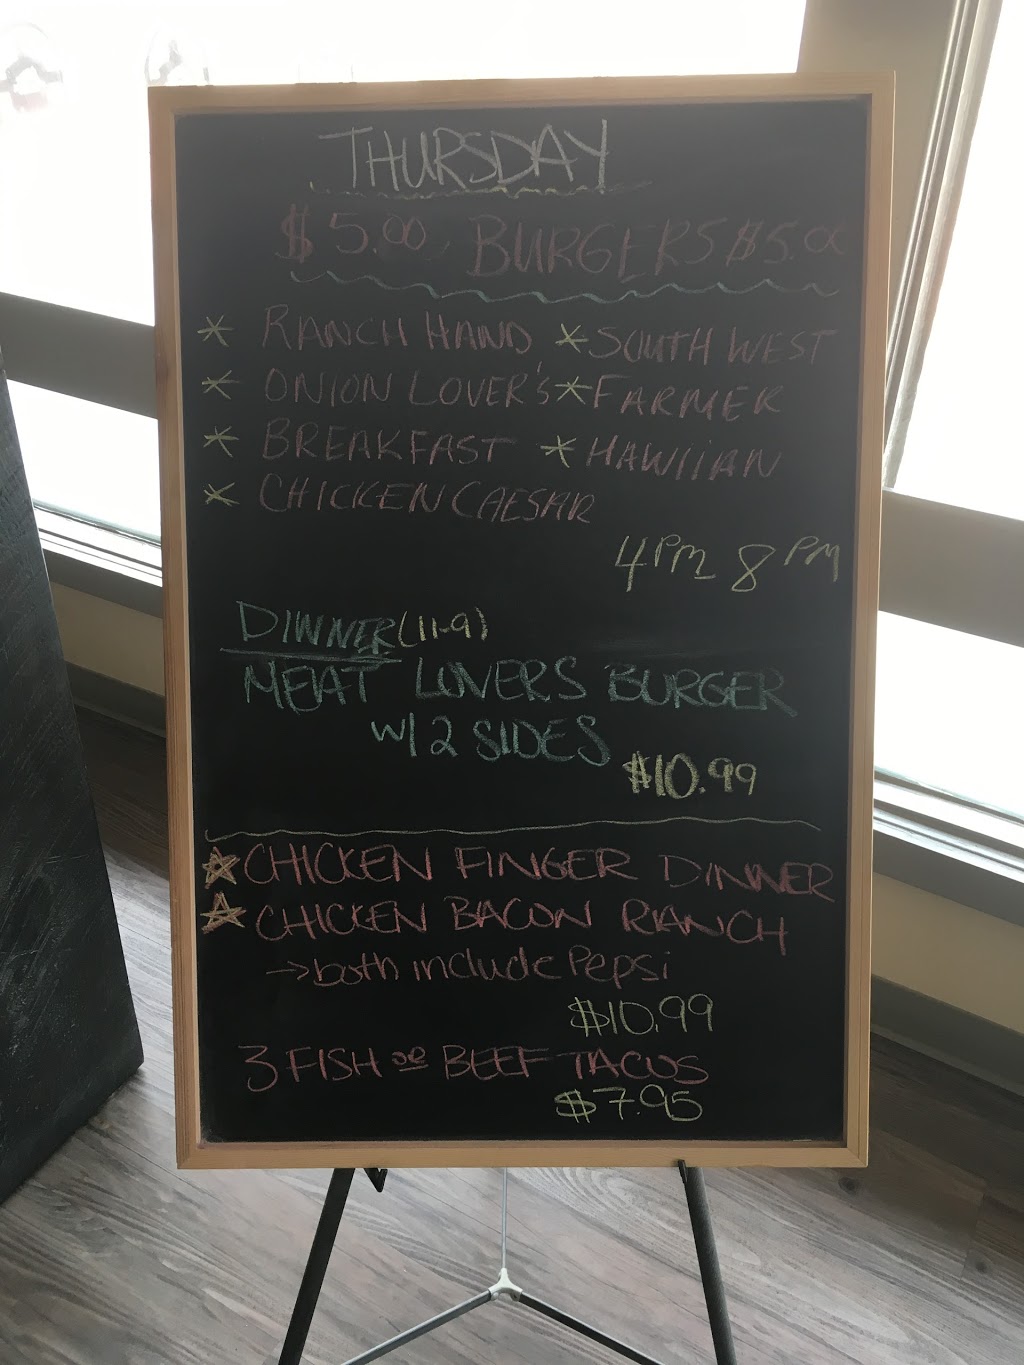 THURSDAY
$5.00 BURGERS $5.00
* RANCH HAND * SOUTH WEST
* ONION LOVER'S * FARMER
* BREAKFAST * HAWIIAN
* CHICKEN CAESAR
4PM 8PM
DINNER (11-9)
MEAT LOVERS BURGER
w/ 2 SIDES
$10.99
☆ CHICKEN FINGER DINNER
☆ CHICKEN BACON RANCH
→ both include Pepsi
$10.99
3 FISH OR BEEF TACOS
$7.95